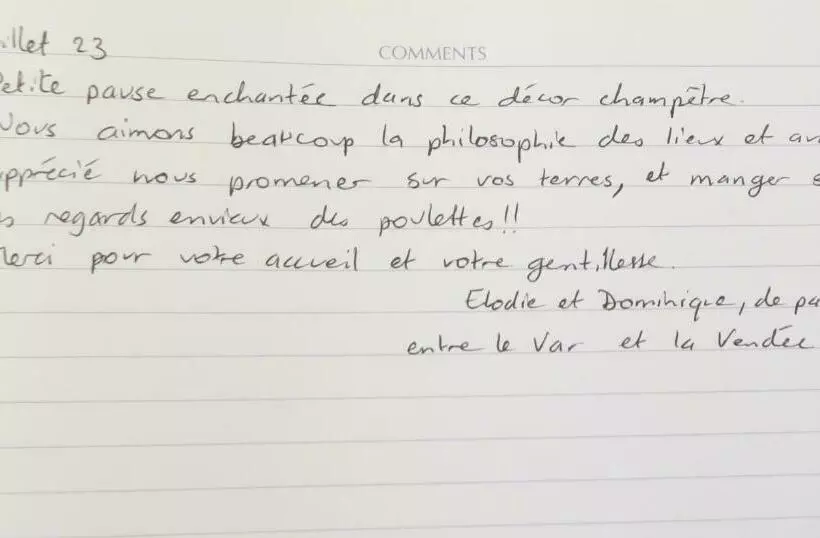 illet 23
COMMENTS
Petite pause enchantée dans ce décor champêtre.
Nous aimons beaucoup la philosophie des lieux et av
apprécié nous promener sur vos terres, et manger s
s regards envieux des poulettes!!
Merci pour votre accueil et votre gentillesse.
Elodie et Dominique, de pa
entre le Var et la Vendée